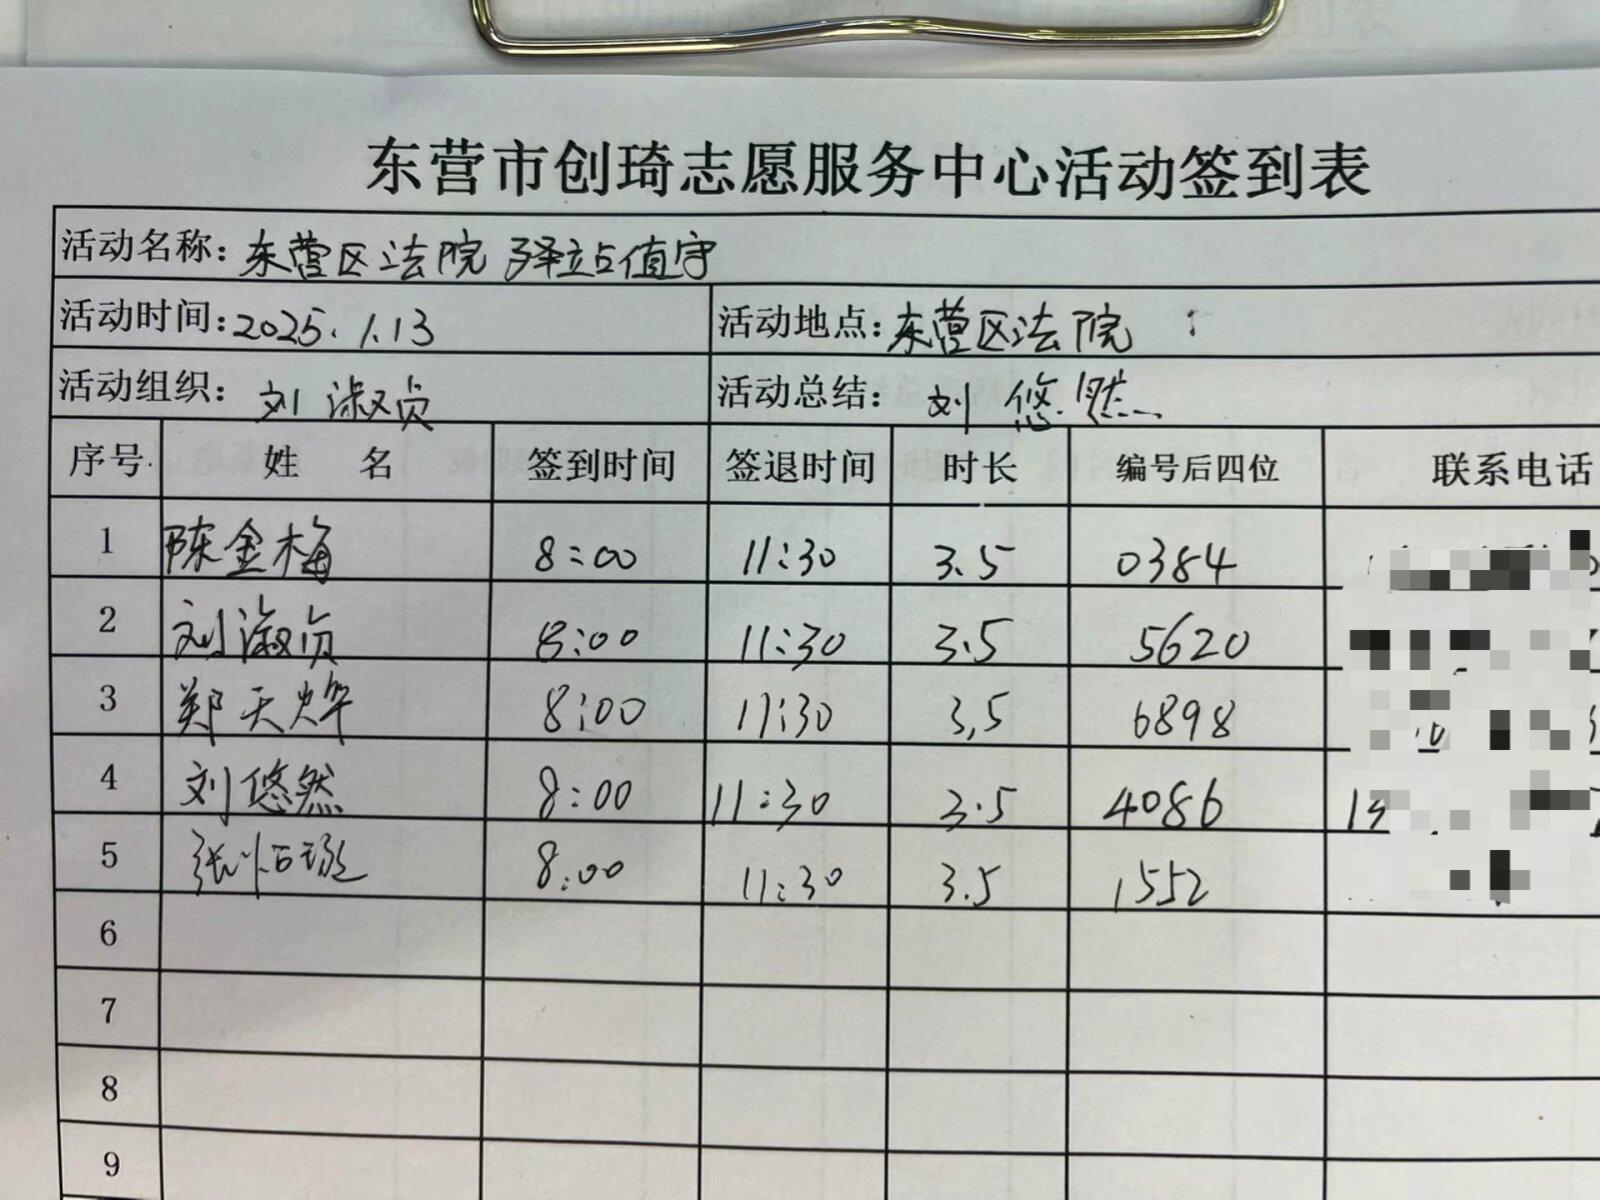 东营市创琦志愿服务中心活动签到表
活动名称：东营区法院 驿站值守
活动时间：2025.1.13 活动地点：东营区法院
活动组织：刘淑贞 活动总结：刘悠然
序号 姓名 签到时间 签退时间 时长 编号后四位 联系电话
1 陈金梅 8:00 11:30 3.5 0384
2 刘淑贞 8:00 11:30 3.5 5620
3 郑天烨 8:00 11:30 3.5 6898
4 刘悠然 8:00 11:30 3.5 4086
5 张 8:00 11:30 3.5 1552
6
7
8
9